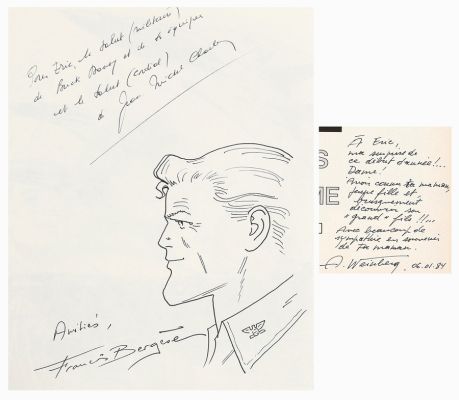 Pour Eric, le salut (militaire)
de Buck Danny et de son équipier
et le salut (cordial)
de Jean-Michel Charlier
Amitiés,
Francis Bergèse
S
ME
À Eric,
ma surprise de
ce début d'année!...
Dame!
Avoir connu ta maman,
jeune fille et
brusquement
découvrir son
"grand" fils!!...
Avec beaucoup de
sympathie en souvenir
de ta maman.
A. Weinberg 06.01.84